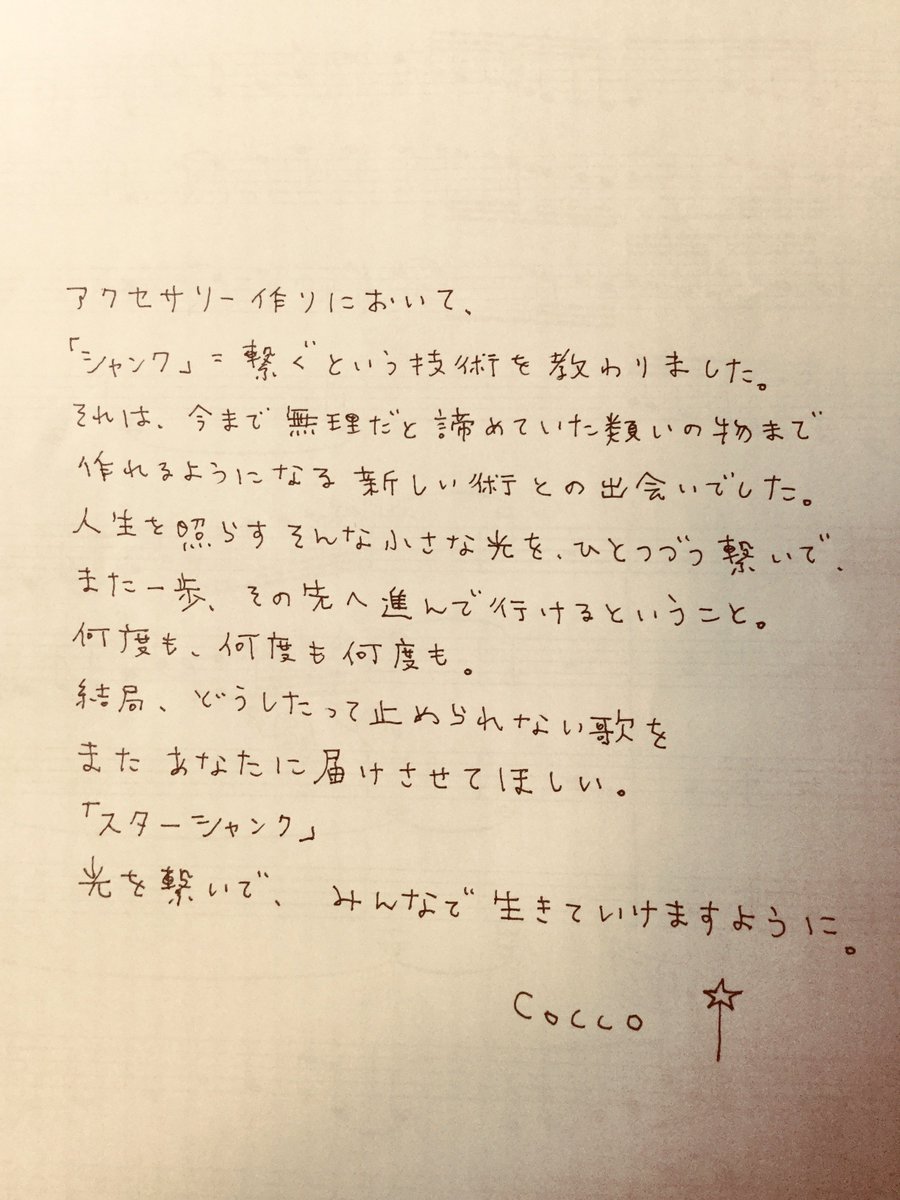 アクセサリー作りにおいて、
「シャンク」=繋ぐという技術を教わりました。
それは、今まで無理だと諦めていた類いの物まで
作れるようになる新しい術との出会いでした。
人生を照らすそんな小さな光を、ひとつづつ繋いで、
また一歩、その先へ進んで行けるということ。
何度も、何度も何度も。
結局、どうしたって止められない歌を
またあなたに届けさせてほしい。
「スターシャンク」
光を繋いで、みんなで生きていけますように。
Cocco